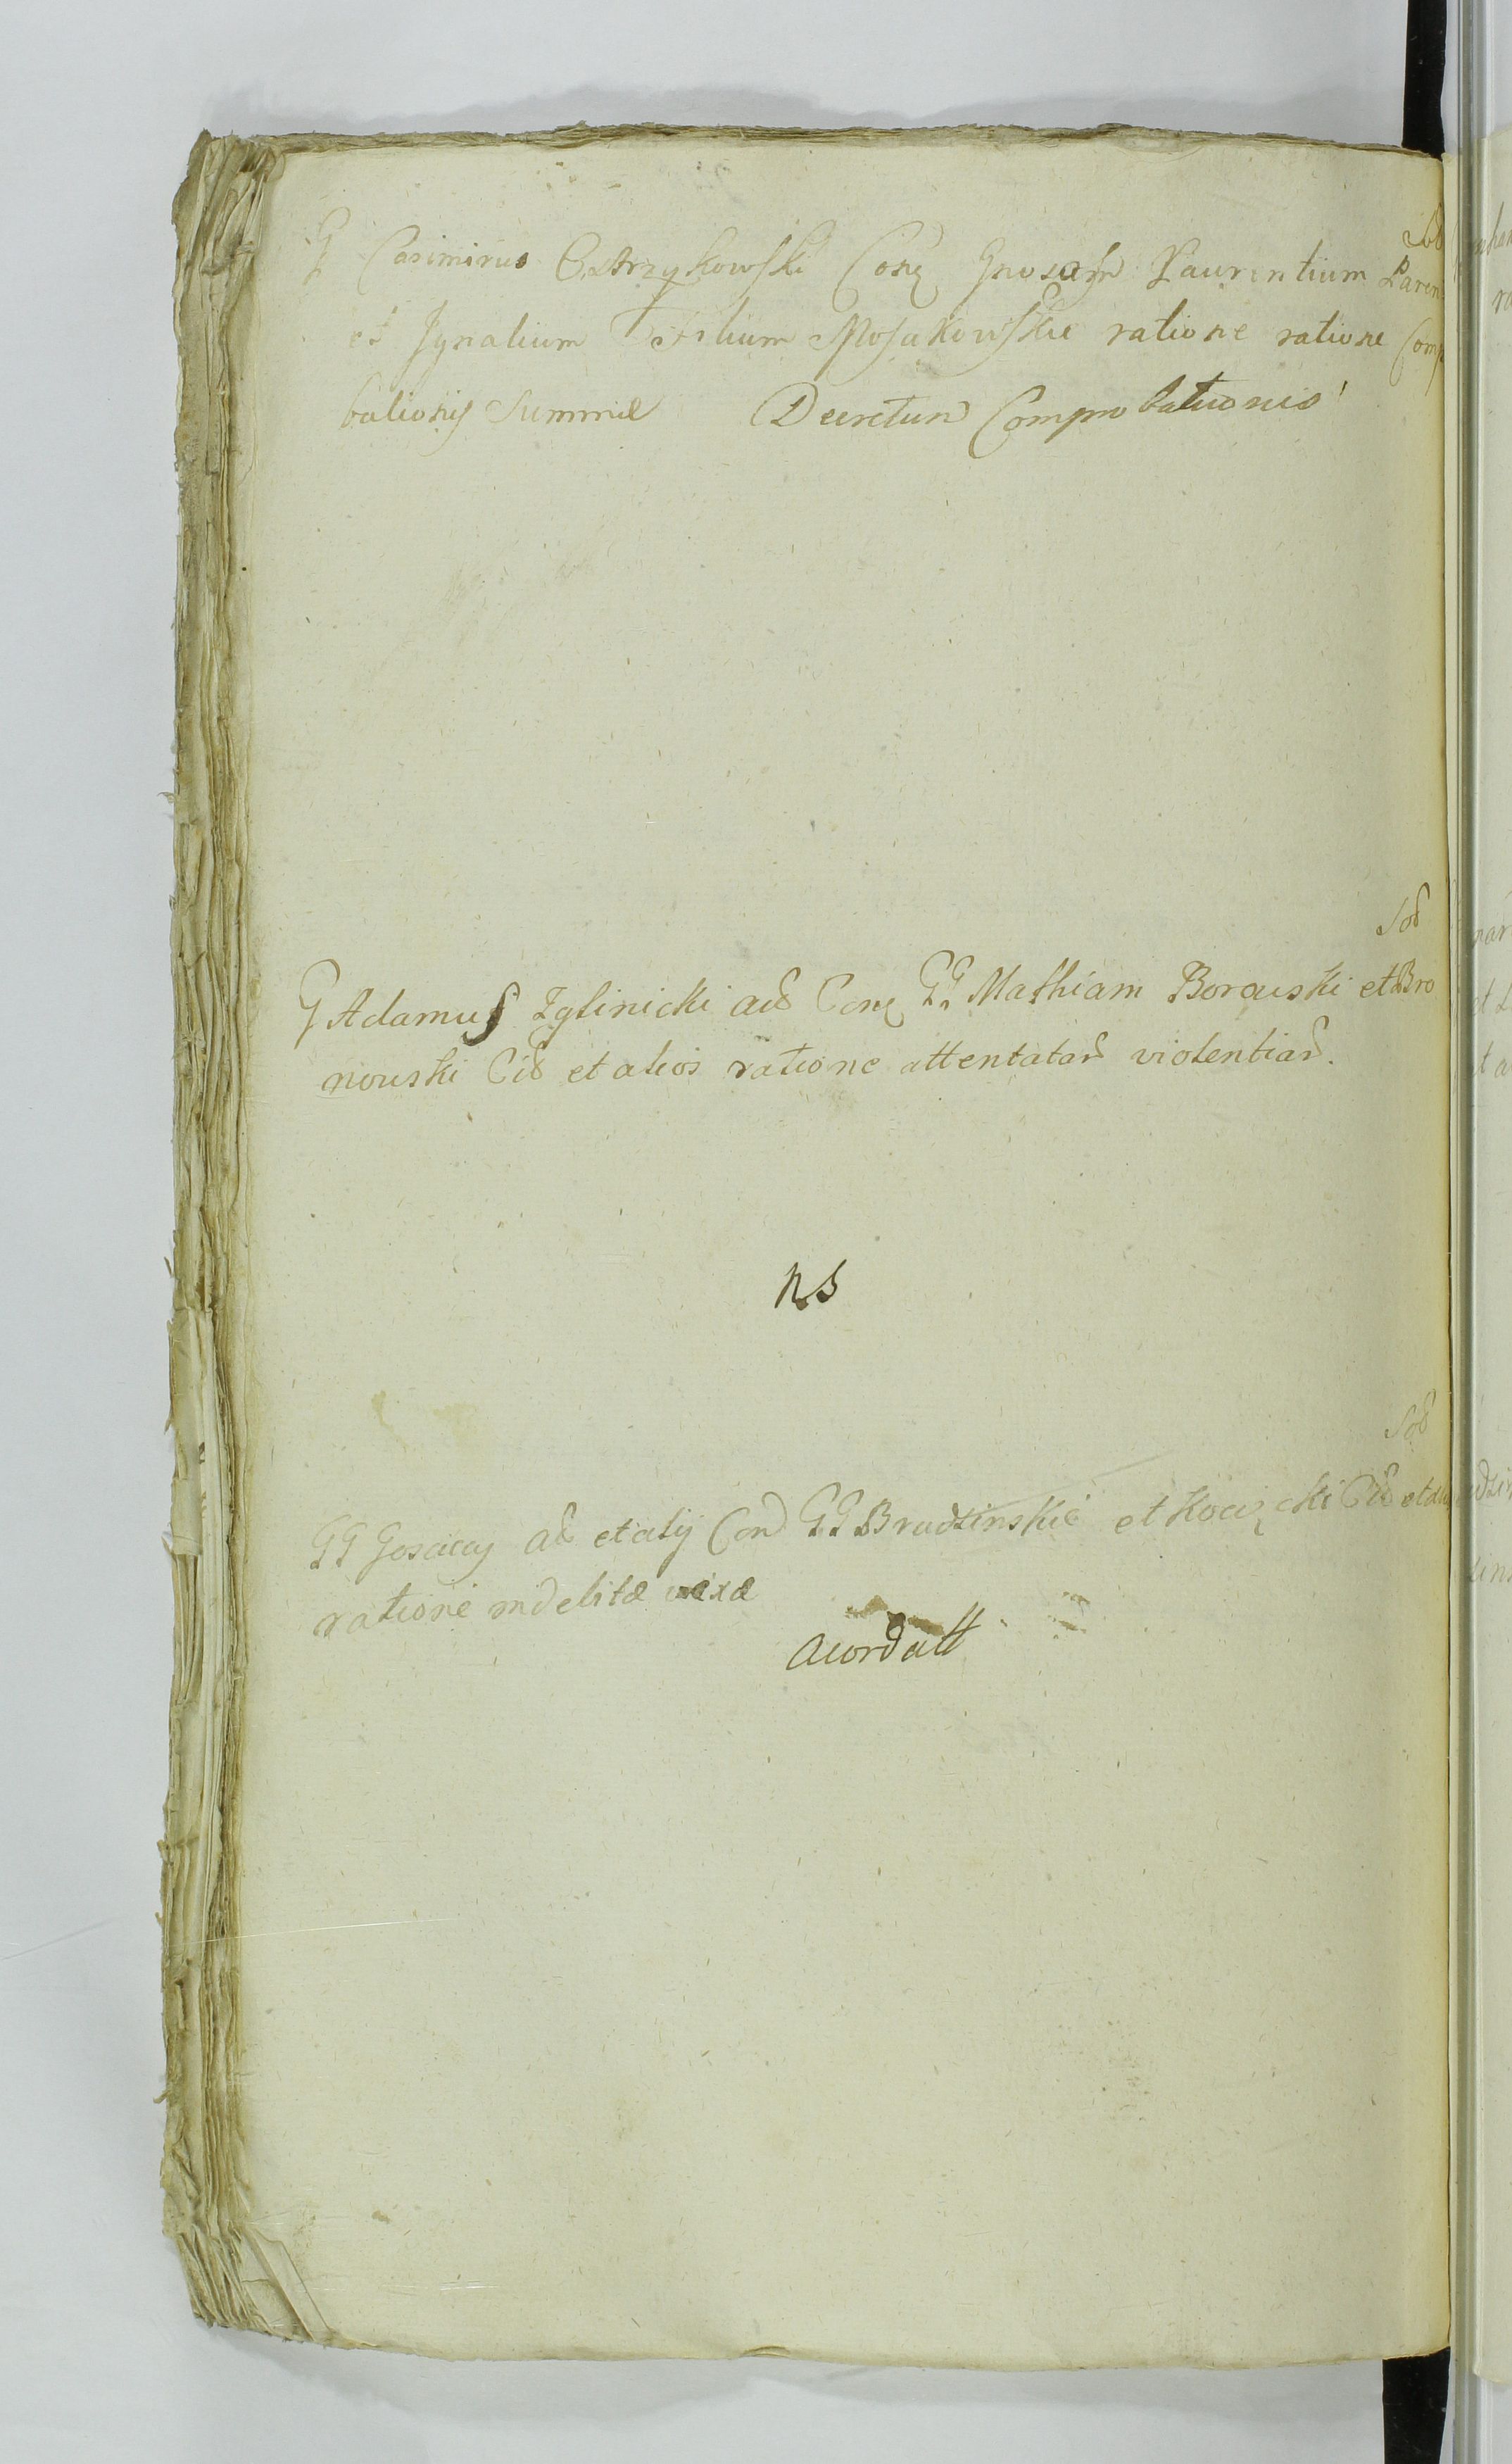 Sob
G Casimirus Ostrzykowski Con Gnosum Laurentium Paren
et Ignatium Filium Mosakowskie ratione ratione Comp
bationis Summae Decretum Comprobationis
Sob
G Adamus Zglinicki ac Con GG Mathiam Borowski et Bro
nowski Cit et alios ratione attentatar violentiar.
NB
Sob
GG Gosciccy ac et alij Con GG Brudzinskie et cki Cit et ali
ratione indebitæ vexæ
acordatt